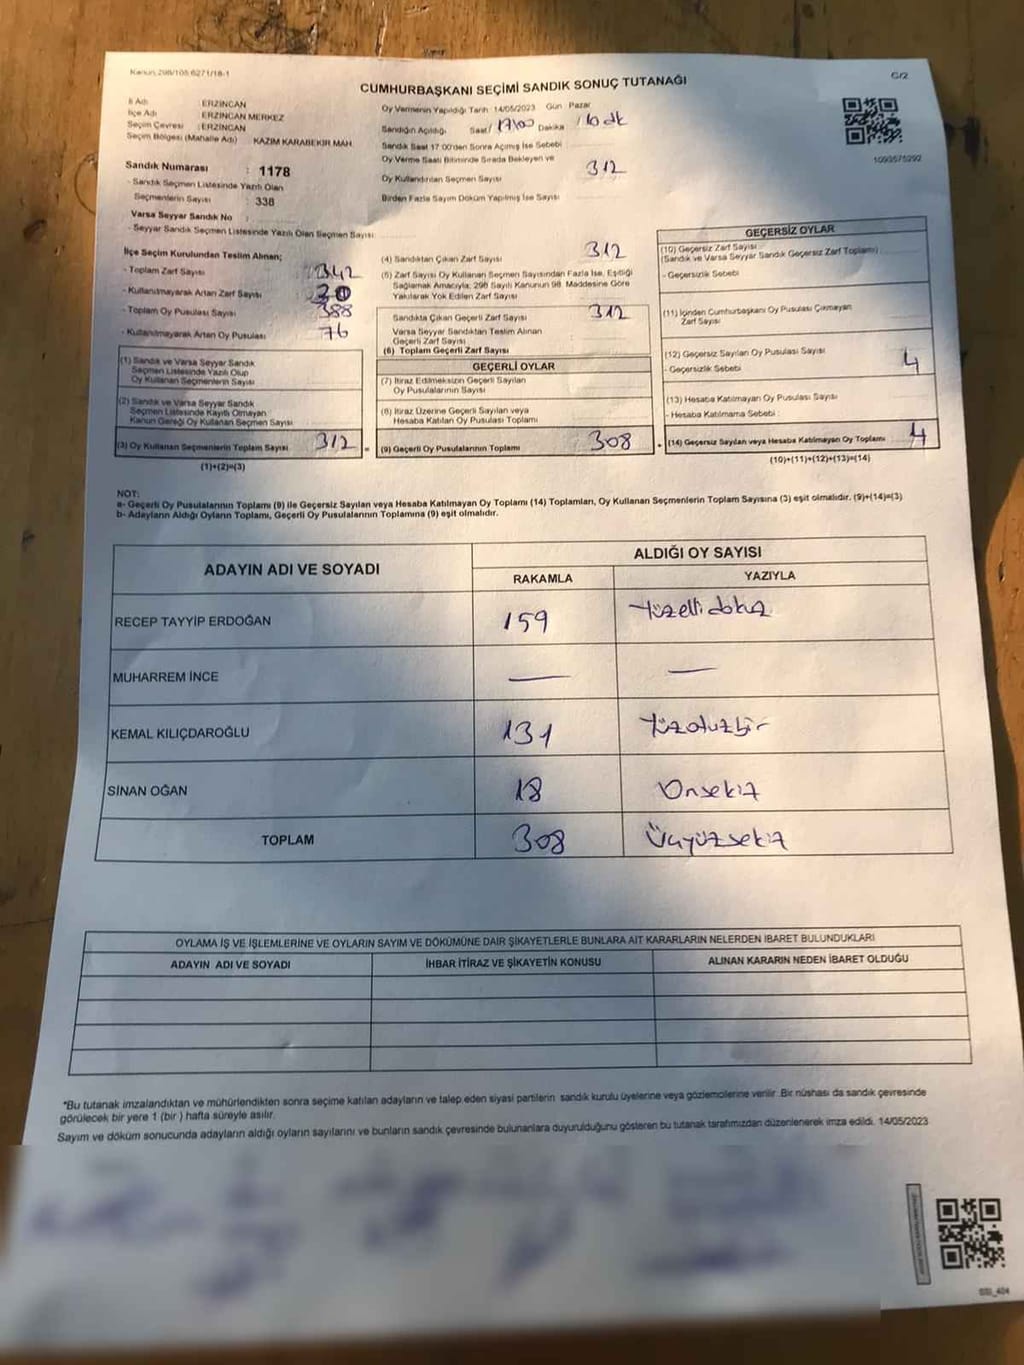 Kanun, 298/105,6271/18-1
C/2
CUMHURBAŞKANI SEÇİMİ SANDIK SONUÇ TUTANAĞI
İl Adı : ERZİNCAN
İlçe Adı : ERZİNCAN MERKEZ
Seçim Çevresi : ERZİNCAN
Seçim Bölgesi (Mahalle Adı) KAZIM KARABEKİR MAH.
Oy Vermenin Yapıldığı Tarih 14/05/2023 Gün Pazar
Sandığın Açıldığı Saat / 17:00 Dakika
Sandık Saat 17:00'den Sonra Açılmış İse Sebebi
Oy Verme Saati Bitiminde Sırada Bekleyen ve
Oy Kullandırılan Seçmen Sayısı 312
Birden Fazla Sayım Döküm Yapılmış İse Sayısı
1093575292
Sandık Numarası : 1178
- Sandık Seçmen Listesinde Yazılı Olan
Seçmenlerin Sayısı : 338
Varsa Seyyar Sandık No :
- Seyyar Sandık Seçmen Listesinde Yazılı Olan Seçmen Sayısı:
İlçe Seçim Kurulundan Teslim Alınan;
- Toplam Zarf Sayısı : 342
- Kullanılmayarak Artan Zarf Sayısı
- Toplam Oy Pusulası Sayısı 388
- Kullanılmayarak Artan Oy Pusulası 76
(1) Sandık ve Varsa Seyyar Sandık
Seçmen Listesinde Yazılı Olup
Oy Kullanan Seçmenlerin Sayısı
(2) Sandık ve Varsa Seyyar Sandık
Seçmen Listesinde Kayıtlı Olmayan
Kanun Gereği Oy Kullanan Seçmen Sayısı
(3) Oy Kullanan Seçmenlerin Toplam Sayısı 312
(1)+(2)=(3)
(4) Sandıktan Çıkan Zarf Sayısı 312
(5) Zarf Sayısı Oy Kullanan Seçmen Sayısından Fazla İse, Eşitliği
Sağlamak Amacıyla; 298 Sayılı Kanunun 98. Maddesine Göre
Yakılarak Yok Edilen Zarf Sayısı
Sandıkta Çıkan Geçerli Zarf Sayısı 312
Varsa Seyyar Sandıktan Teslim Alınan
Geçerli Zarf Sayısı
(6) Toplam Geçerli Zarf Sayısı
GEÇERLİ OYLAR
(7) İtiraz Edilmeksizin Geçerli Sayılan
Oy Pusulalarının Sayısı
(8) İtiraz Üzerine Geçerli Sayılan veya
Hesaba Katılan Oy Pusulası Toplamı
= (9) Geçerli Oy Pusulalarının Toplamı 308
GEÇERSİZ OYLAR
(10) Geçersiz Zarf Sayısı
(Sandık ve Varsa Seyyar Sandık Geçersiz Zarf Toplamı)
- Geçersizlik Sebebi
(11) İçinden Cumhurbaşkanı Oy Pusulası Çıkmayan
Zarf Sayısı
(12) Geçersiz Sayılan Oy Pusulası Sayısı 4
- Geçersizlik Sebebi
(13) Hesaba Katılmayan Oy Pusulası Sayısı
- Hesaba Katılmama Sebebi :
+ (14) Geçersiz Sayılan veya Hesaba Katılmayan Oy Toplamı 4
(10)+(11)+(12)+(13)=(14)
NOT:
a- Geçerli Oy Pusulalarının Toplamı (9) ile Geçersiz Sayılan veya Hesaba Katılmayan Oy Toplamı (14) Toplamları, Oy Kullanan Seçmenlerin Toplam Sayısına (3) eşit olmalıdır. (9)+(14)=(3)
b- Adayların Aldığı Oyların Toplamı, Geçerli Oy Pusulalarının Toplamına (9) eşit olmalıdır.
ADAYIN ADI VE SOYADI
ALDIĞI OY SAYISI
RAKAMLA YAZIYLA
RECEP TAYYİP ERDOĞAN 159 Yüzelli dokuz
MUHARREM İNCE — —
KEMAL KILIÇDAROĞLU 131 Yüzotuzbir
SİNAN OĞAN 18 Onsekiz
TOPLAM 308 Üçyüzsekiz
OYLAMA İŞ VE İŞLEMLERİNE VE OYLARIN SAYIM VE DÖKÜMÜNE DAİR ŞİKAYETLERLE BUNLARA AİT KARARLARIN NELERDEN İBARET BULUNDUKLARI
ADAYIN ADI VE SOYADI İHBAR İTİRAZ VE ŞİKAYETİN KONUSU ALINAN KARARIN NEDEN İBARET OLDUĞU
*Bu tutanak imzalandıktan ve mühürlendikten sonra seçime katılan adayların ve talep eden siyasi partilerin sandık kurulu üyelerine veya gözlemcilerine verilir. Bir nüshası da sandık çevresinde
görülecek bir yere 1 (bir ) hafta süreyle asılır.
Sayım ve döküm sonucunda adayların aldığı oyların sayılarını ve bunların sandık çevresinde bulunanlara duyurulduğunu gösteren bu tutanak tarafımızdan düzenlenerek imza edildi. 14/05/2023
SSI_404